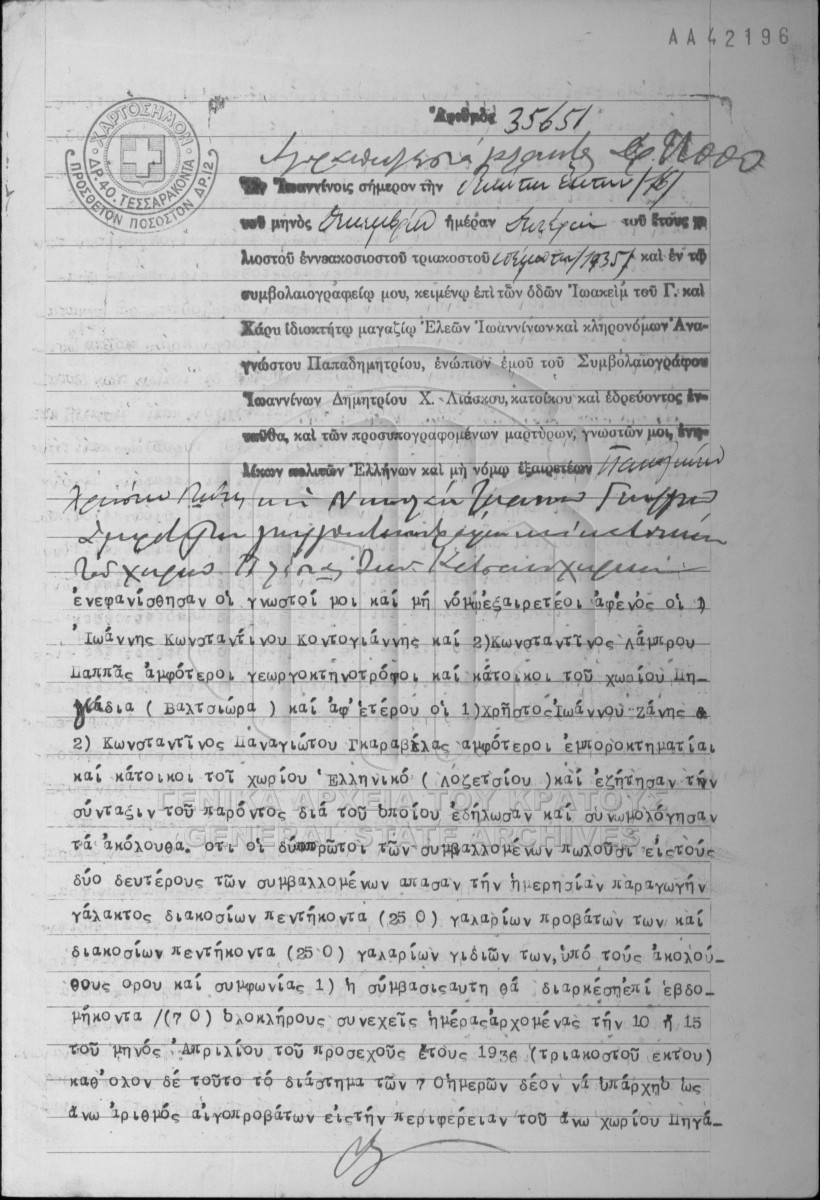 ΑΑ42196
ΧΑΡΤΟΣΗΜΟΝ
ΔΡ. 40. ΤΕΣΣΑΡΑΚΟΝΤΑ
ΠΡΟΣΘΕΤΟΝ ΠΟΣΟΣΤΟΝ ΔΡ. 12.
Ἀριθμὸς 35651
Ἐν Ἰωαννίνοις σήμερον τὴν δεκάτην ἕκτην /16/
τοῦ μηνὸς Δεκεμβρίου ἡμέραν Δευτέραν τοῦ ἔτους χι
λιοστοῦ ἐννεακοσιοστοῦ τριακοστοῦ πέμπτου /1935/ καὶ ἐν τῷ
συμβολαιογραφείῳ μου, κειμένῳ ἐπὶ τῶν ὁδῶν Ἰωακεὶμ τοῦ Γ. καὶ
Χάρυ ἰδιοκτήτῳ μαγαζίῳ Ἐλεῶν Ἰωαννίνων καὶ κληρονόμων Ἀνα-
γνώστου Παπαδημητρίου, ἐνώπιον ἐμοῦ τοῦ Συμβολαιογράφου
Ἰωαννίνων Δημητρίου Χ. Λιάσκου, κατοίκου καὶ ἑδρεύοντος ἐν-
ταῦθα, καὶ τῶν προσυπογραφομένων μαρτύρων, γνωστῶν μοι, ἐνη-
λίκων πολιτῶν Ἑλλήνων καὶ μὴ νόμῳ ἐξαιρετέων
Χρήστου καὶ Νικολάου
τοῦ χωρίου
ἐνεφανίσθησαν οἱ γνωστοί μοι καί μή νόμῳἐξαιρετέοι ἀφ'ἑνός οἱ 1)
Ἰωάννης Κωνσταντίνου Κοντογιάννης καί 2)Κωνσταντῖνος Λάμπρου
Παππᾶς ἀμφότεροι γεωργοκτηνοτρόφοι καί κάτοικοι τοῦ χωρίου Πη-
γάδια ( Βαλτσιώρα ) καί ἀφ'ἑτέρου οἱ 1)Χρῆστος Ἰωάννου Ζάνης &
2) Κωνσταντῖνος Παναγιώτου Γκαραβέλας ἀμφότεροι ἐμποροκτηματίαι
καί κάτοικοι τοῦ χωρίου Ἑλληνικό ( Λοζετσίου )καί ἐζήτησαν τήν
σύνταξιν τοῦ παρόντος διά τοῦ ὁποίου ἐδήλωσαν καί συνωμολόγησαν
τά ἀκόλουθα. οτι οἱ δύο πρῶτοι τῶν συμβαλλομένων πωλοῦσι εἰςτούς
δύο δευτέρους τῶν συμβαλλομένων απασαν τήν ἡμερησίαν παραγωγήν
γάλακτος διακοσίων πεντήκοντα (250) γαλαρίων προβάτων των καί
διακοσίων πεντήκοντα (250) γαλαρίων γιδιῶν των,ὑπό τούς ἀκολού-
θους ορου καί συμφωνίας 1) ἡ σύμβασιςαυτη θά διαρκέσηἐπί ἑβδο-
μήκοντα /(70) ὁλοκλήρους συνεχεῖς ἡμέραςἀρχομένας τήν 10 ἤ 15
τοῦ μηνός Ἀπριλίου τοῦ προσεχοῦς ἔτους 1936 (τριακοστοῦ εκτου)
καθ'ολον δέ τοῦτο τό διάστημα τῶν 70 ἡμερῶν δέον νά ὑπάρχῃ ὁ ὡς
ἄνω ἀριθμός αἰγοπροβάτων εἰςτήν περιφέρειαν τοῦ ἄνω χωρίου Πηγά-
ΓΕΝΙΚΑ ΑΡΧΕΙΑ ΤΟΥ ΚΡΑΤΟΥΣ
GENERAL STATE ARCHIVES